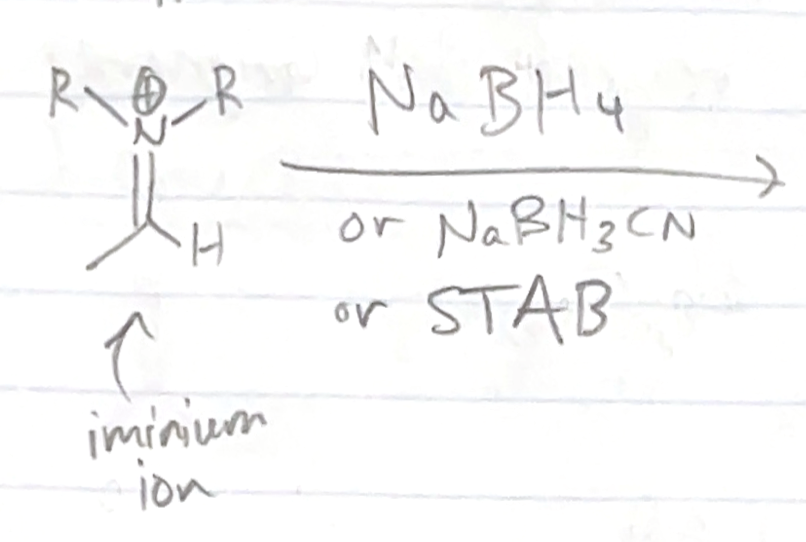 R ⊕ R
N
H
NaBH4
or NaBH3CN
or STAB
iminium
ion